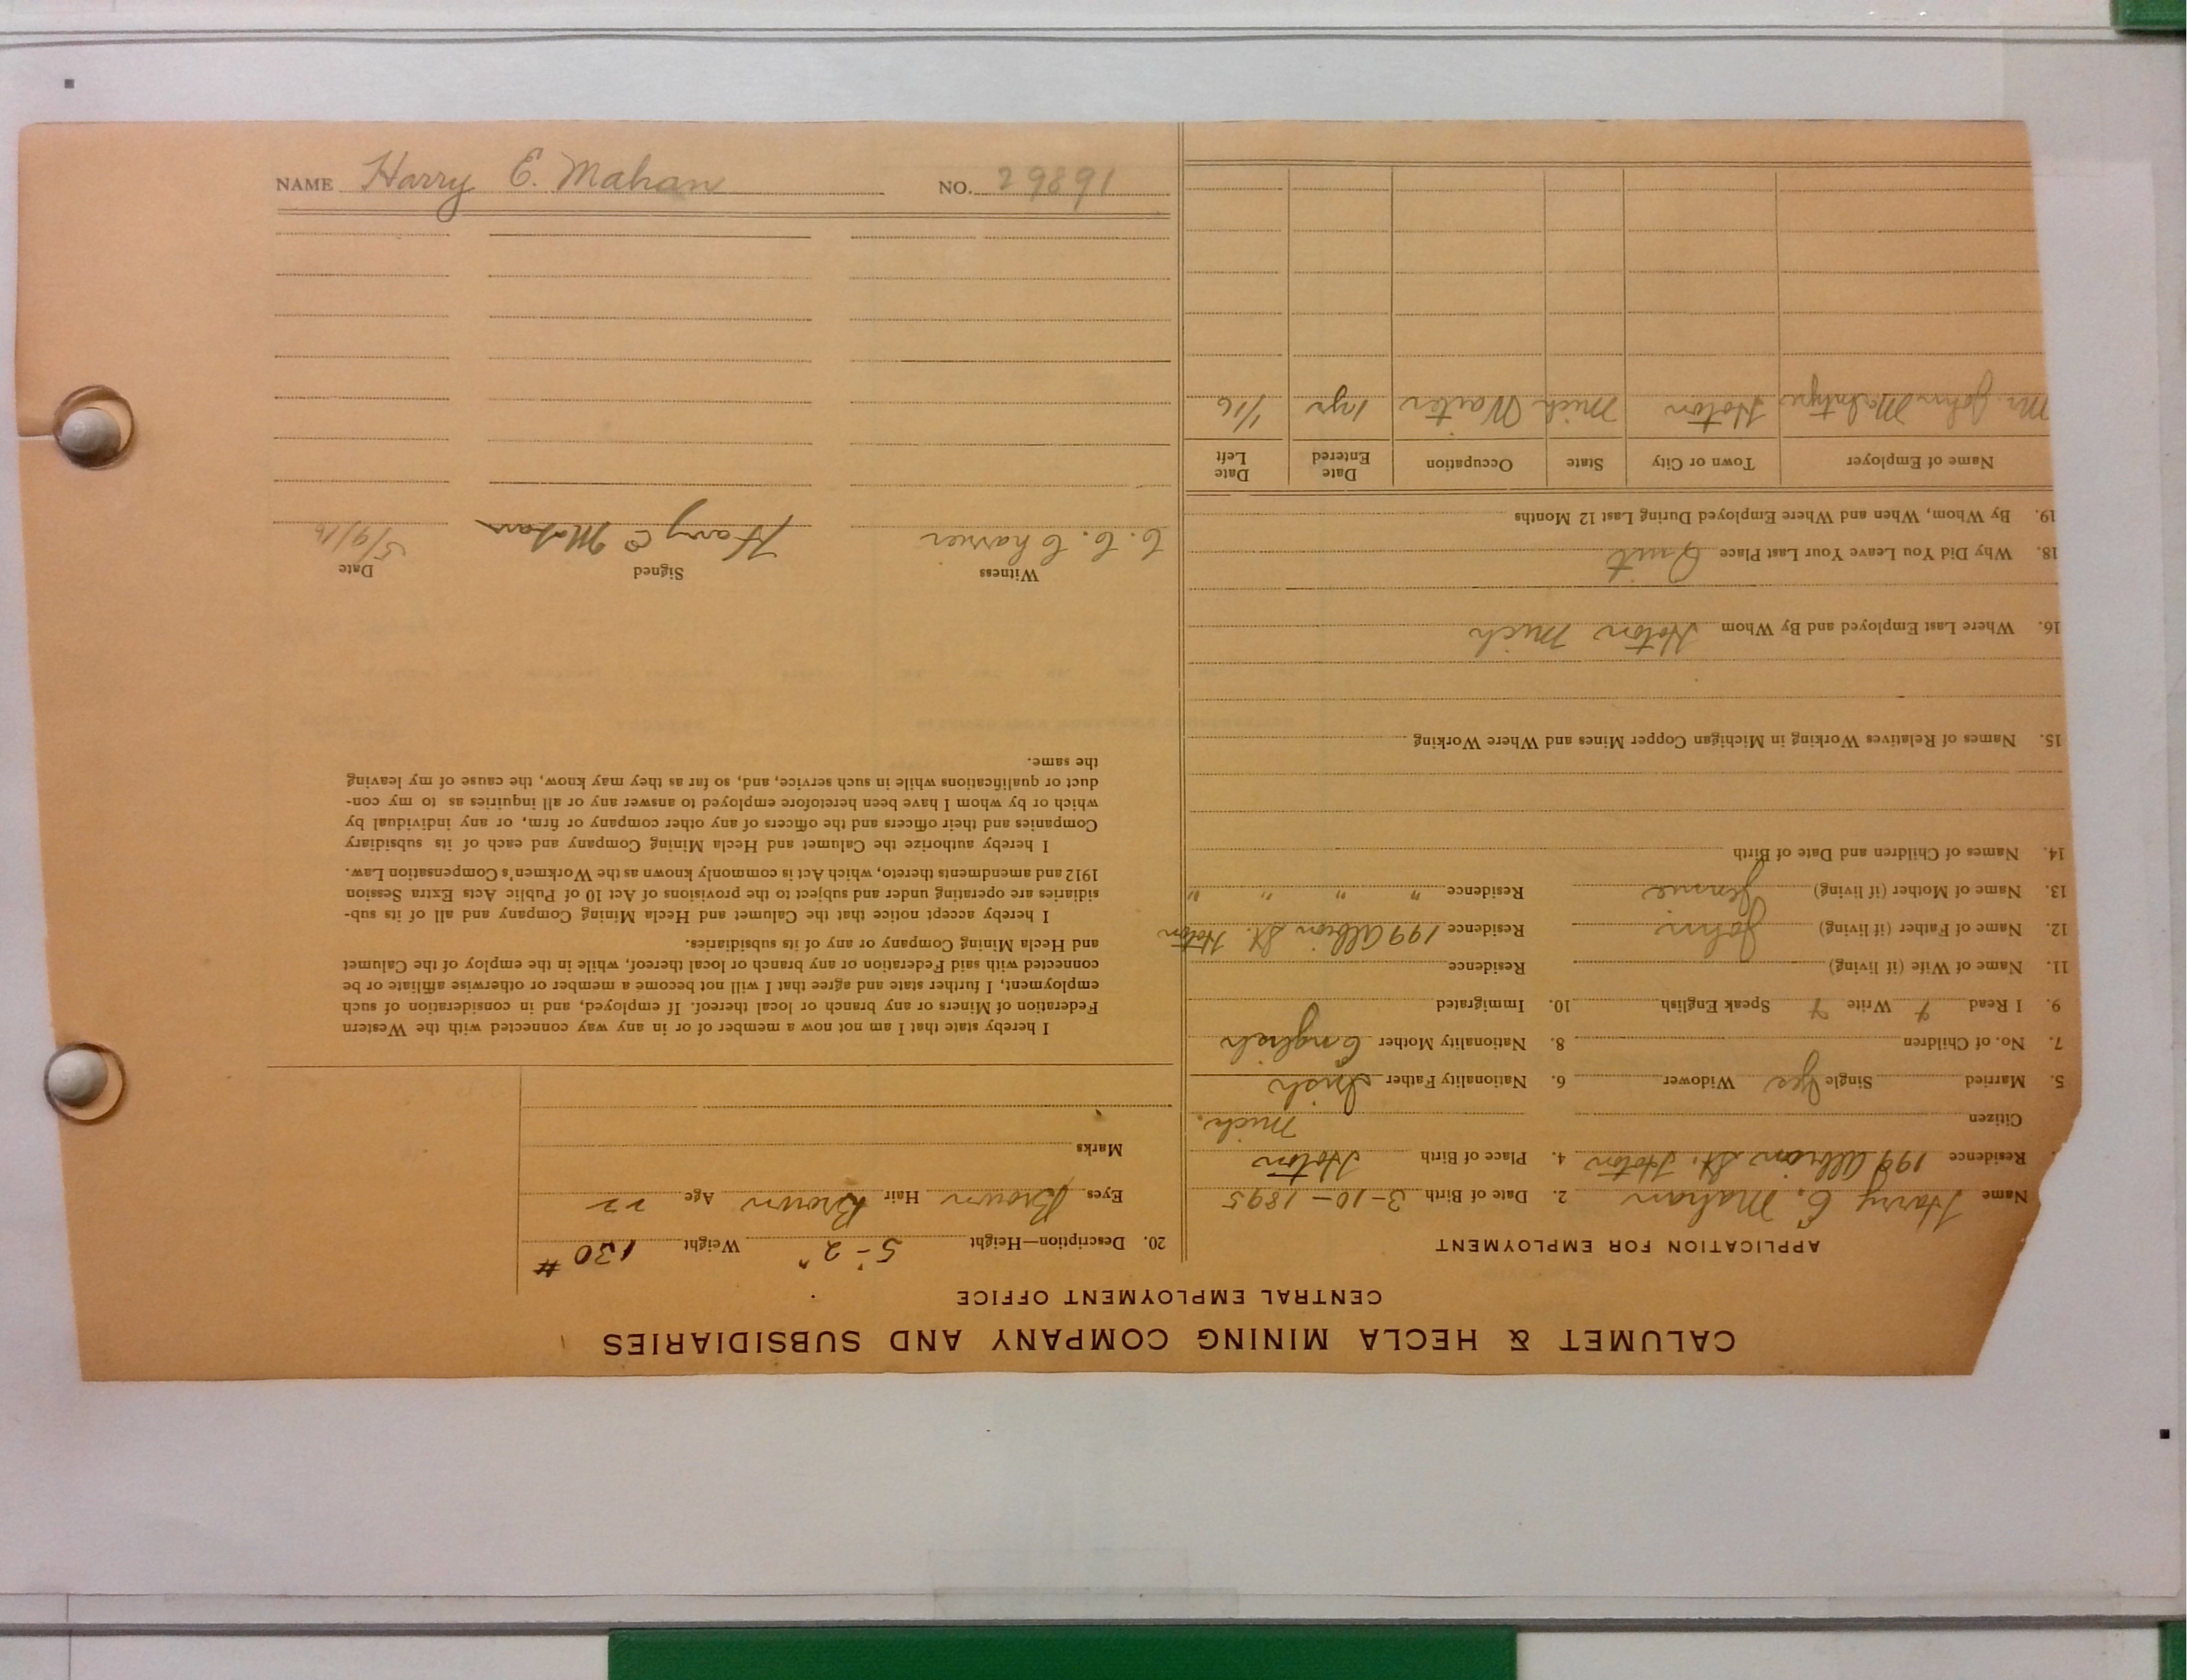 NAME Harry E. Mahan NO. 29891
CALUMET & HECLA MINING COMPANY AND SUBSIDIARIES
CENTRAL EMPLOYMENT OFFICE
APPLICATION FOR EMPLOYMENT
Name Harry E. Mahan 2. Date of Birth 3-10-1895
Residence 199 Albion St. Hoton 4. Place of Birth Hoton
Citizen Mich.
5. Married Single Yes Widower 6. Nationality Father Irish
7. No. of Children 8. Nationality Mother English
9. I Read Y Write Y Speak English 10. Immigrated
11. Name of Wife (if living) Residence
12. Name of Father (if living) John Residence 199 Albion St. Hoton
13. Name of Mother (if living) Jennie Residence " " " "
14. Names of Children and Date of Birth
15. Names of Relatives Working in Michigan Copper Mines and Where Working
16. Where Last Employed and By Whom Hoton Mich
18. Why Did You Leave Your Last Place Quit
19. By Whom, When and Where Employed During Last 12 Months
Name of Employer Town or City State Occupation Date Entered Date Left
Mr. John McIntyre Hoton Mich Waiter 1 yr 1/16
20. Description—Height 5'-2" Weight 130 #
Eyes Brown Hair Brown Age 22
Marks
I hereby state that I am not now a member of or in any way connected with the Western
Federation of Miners or any branch or local thereof. If employed, and in consideration of such
employment, I further state and agree that I will not become a member or otherwise affiliate or be
connected with said Federation or any branch or local thereof, while in the employ of the Calumet
and Hecla Mining Company or any of its subsidiaries.
I hereby accept notice that the Calumet and Hecla Mining Company and all of its sub-
sidiaries are operating under and subject to the provisions of Act 10 of Public Acts Extra Session
1912 and amendments thereto, which Act is commonly known as the Workmen's Compensation Law.
I hereby authorize the Calumet and Hecla Mining Company and each of its subsidiary
Companies and their officers and the officers of any other company or firm, or any individual by
which or by whom I have been heretofore employed to answer any or all inquiries as to my con-
duct or qualifications while in such service, and, so far as they may know, the cause of my leaving
the same.
Witness Signed Date
C. C. Charrier Harry E Mahan 5/9/16